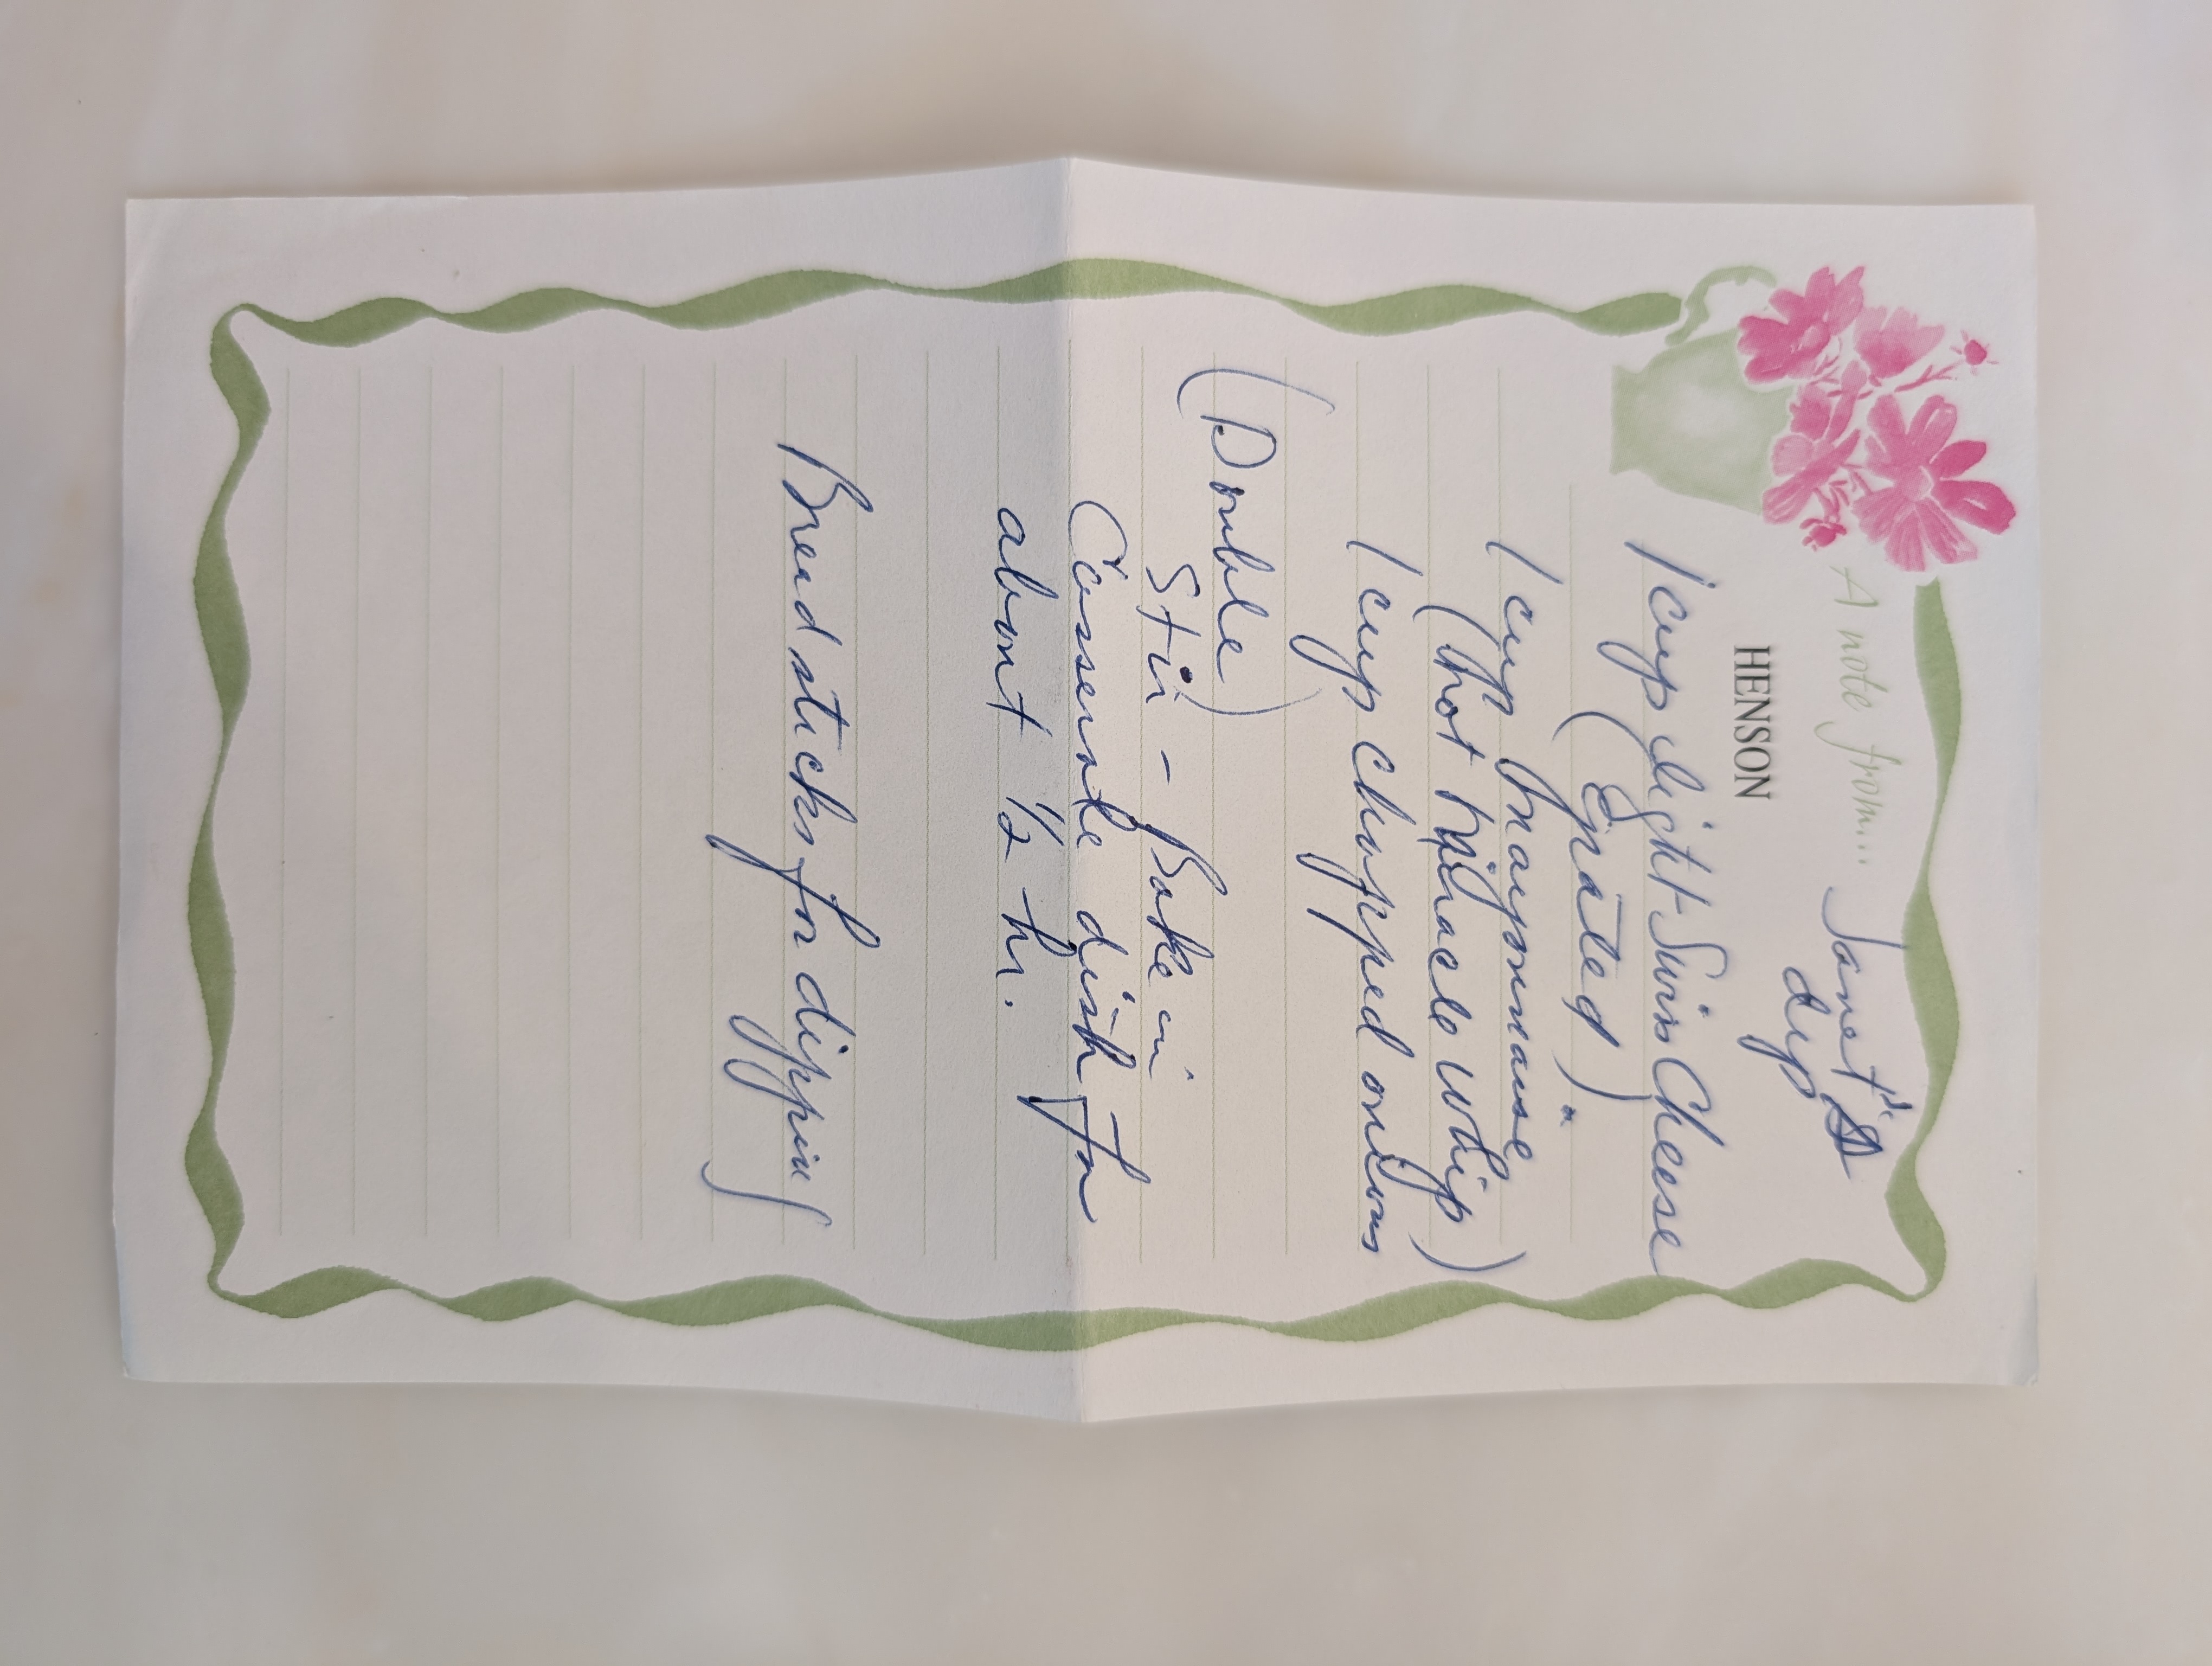 A note from... Janet's
dip
HENSON
1 cup light Swiss Cheese
(Grated)
1 cup Mayonnaise
(not Miracle Whip)
1 cup chopped onions
(Double)
Stir - Bake in
Casserole dish for
about 1/2 hr.
Bread sticks for dipping